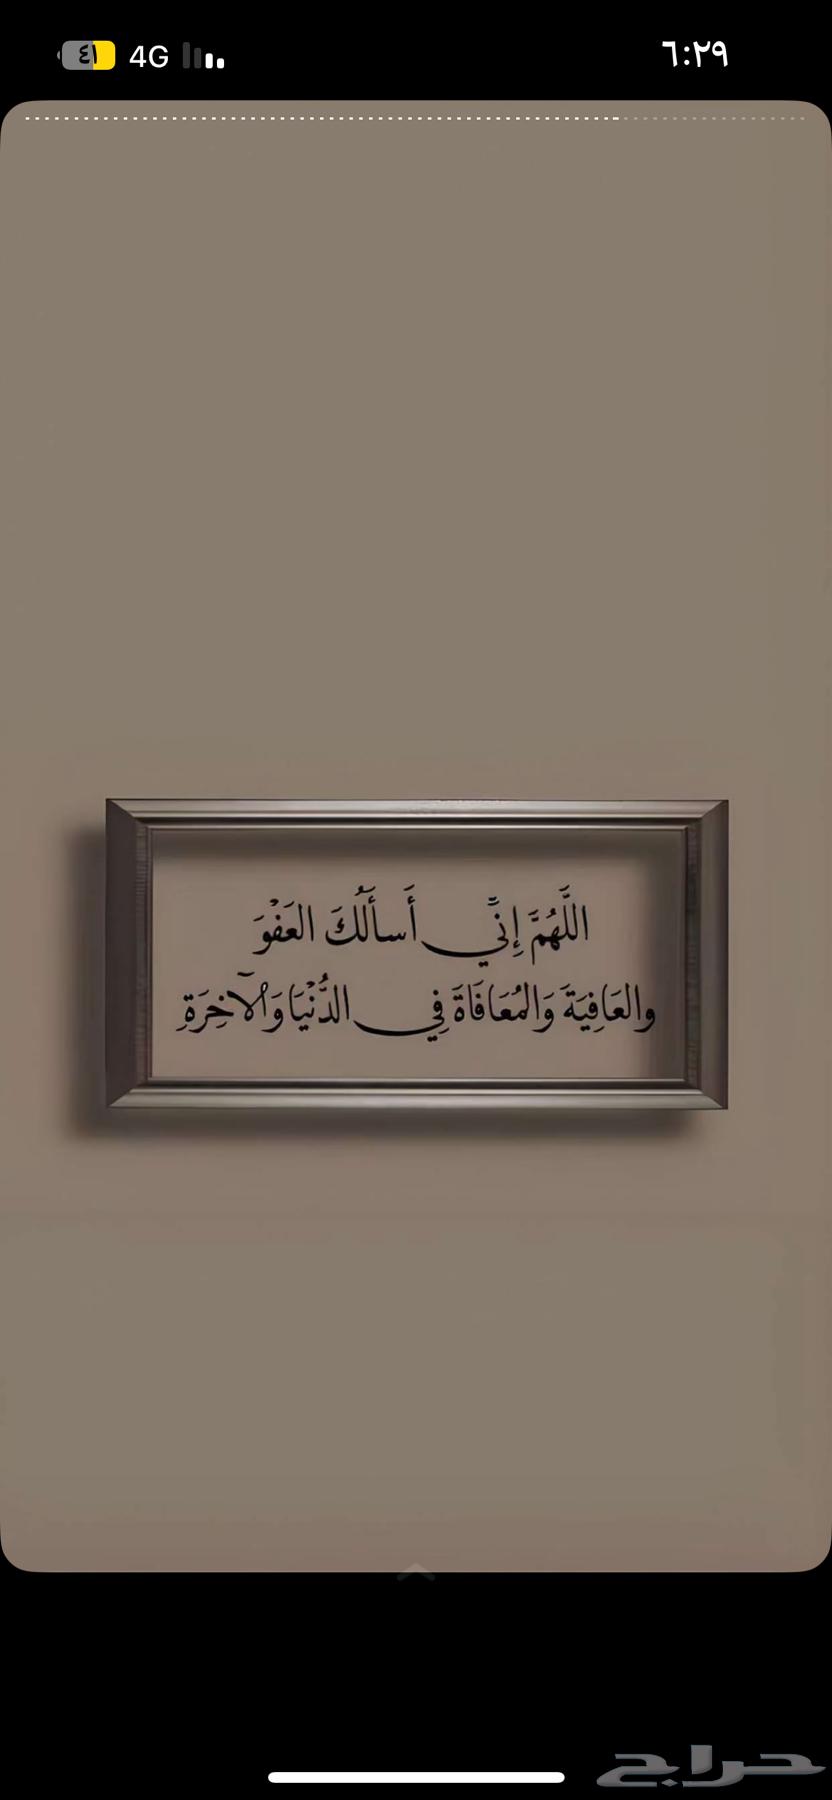 ٦:٢٩
4G
٤١
اللَّهُمَّ إِنِّي أَسأَلُكَ العَفْوَ
والعَافِيَةَ وَالمُعَافَاةَ فِي الدُّنْيَا وَالآخِرَةِ
حراج